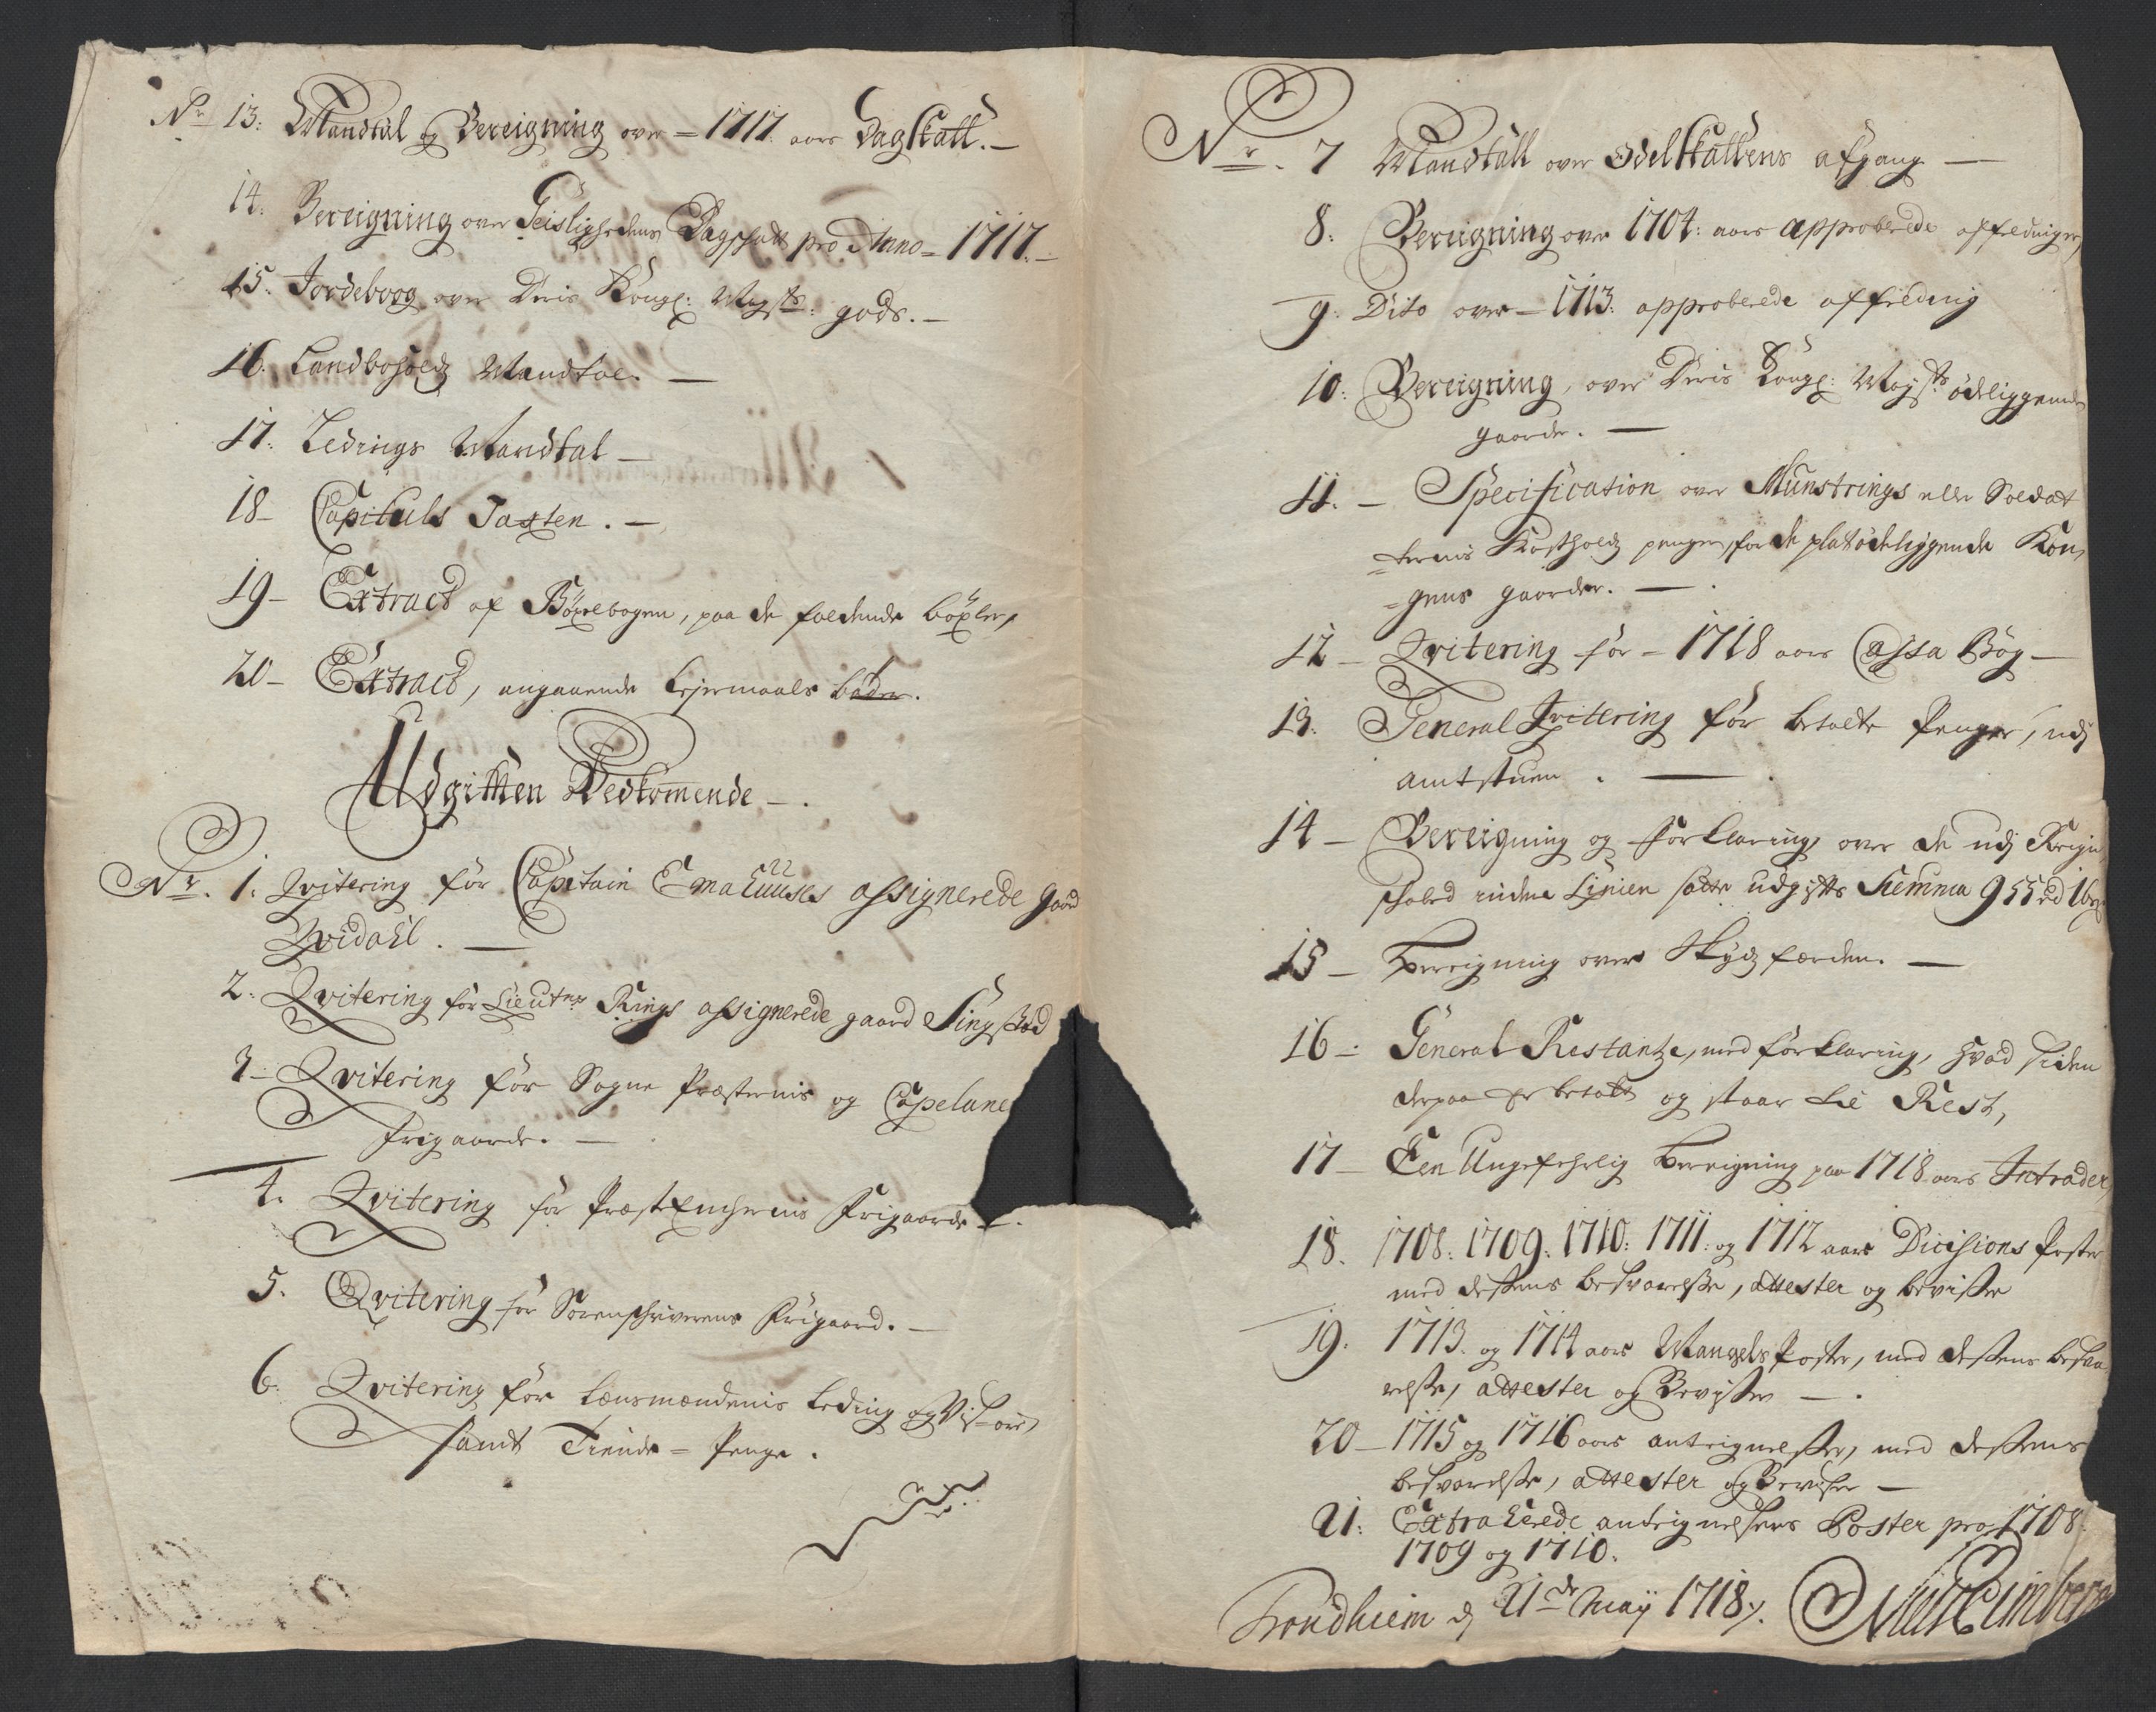 Nr 13: Mandtal og Bereigning over = 1717. aars Dag Skatt. —
14: Bereigning over Geistlighedens Dagskatt pro Anno = 1717. —
15. Jordeboog over Deris Kongl: Mayts: gods. —
16. Landboholds Mandtal. —
17. Ledings Mandtal —
18 — Capituls Taxten. —
19 — Extract af Böxelbogen, paa de faldende böxler,
20 — Extract, angaaende Lejermaals böder.
Udgifften Vedkommende —.
Nr. 1: Qvitering for Capitain assignerede gaard
Qvidahl. —
2: Qvitering for Lieutnt Rings assignerede gaard Singstad
3 — Qvitering for Sogne Præsternis og Capelane
frigaarde. —
4. Qvitering for Præst Enchernis Frigaarde —.
5. Qvitering for Sorenschriverens Frigaard. —
6. Qvitering for Lensmændenis Leding og Visöre,
samt Tiende = Penge.
Nr. 7 Mandtall over Odelskattens afgang —
8: Bereigning over 1704: aars approberede affældninger,
9: Dito over — 1713: approberede affelding
10: Bereigning, over Deris Kongl: Mayts ödeliggende
gaarde. —
11. — Specification over Munstrings eller Soldat
=ternis Kostholds penger, for de plat ödeliggende Kon,
=gens gaarder. —.
12 — Qvitering for — 1718 aars Cassa Bog —
13. General Qvitering for betalte Penger, udj
amtstuen. —.
14 — Bereigning og forklaring, over de udj Reign,
schabed inden Linien satte udgiffts Summa 955 rd
15 — Bereigning over Skyds færden. —
16 —: General Restantze, med forklaring, hvad siden
derpaa er betalt og staar til Rest,
17 — Een Ungefehrlig Bereigning paa 1718 aars Intrader,
18. 1708: 1709: 1710: 1711: og 1712 aars Dicisions Poster
med dessens besvarelsse, attester og bevisser
19. 1713. og 1714 aars Mangels Poster, med dessens besva
relsse, attester og Bevisser —.
20 — 1715 og 1716 aars antegnelsser, med dessens
besvarelsse, attester og Beviser —
21: Extraherede antegnelsers Poster pro 1708:
1709 og 1710.
Trondhiem d 21de May 1718.